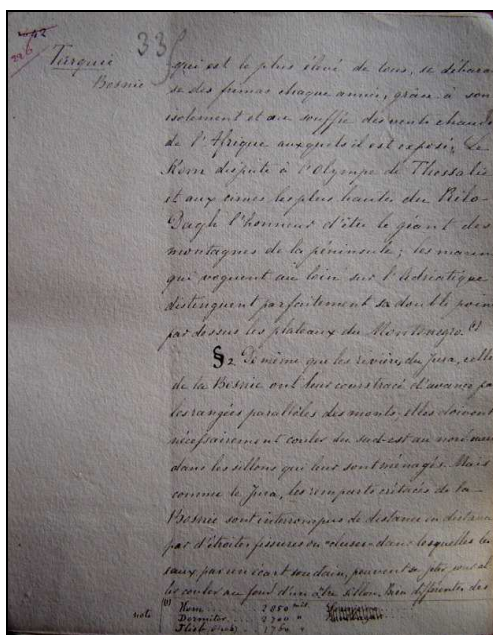 42
226
33
Turquie
Bosnie
qui est le plus élevé de tous, se débarras
se des frimas chaque année, grâce à son
isolement et au souffle des vents chauds
de l'Afrique auxquels il est exposé. Le
Kom dispute à l'Olympe de Thessalie
et aux cimes les plus hautes du Rilo-
Dagh l'honneur d'être le géant des
montagnes de la péninsule; les marins
qui voguent au loin sur l'Adriatique
distinguent parfaitement sa double poin
par dessus les plateaux du Montenegro. (1)
§2 De même que les rivières du Jura, celles
de la Bosnie ont leur cours tracé d'avance pa
les rangées parallèles des monts; elles doivent
nécessairement couler du sud-est au nord oues
dans les sillons qui leur sont ménagés. Mais
comme le Jura, les remparts crétacés de la
Bosnie sont interrompus de distance en distance
par d'étroites fissures ou "cluses" dans lesquelles les
eaux, par un écart soudain, peuvent se
couler au fond d'un autre sillon. Bien différentes des
(1)
note
Kom 2850 mèt.
Dormitor 2700 "
1760 "